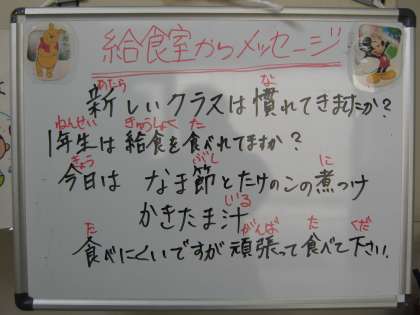 給食室からメッセージ
あたら な
新しいクラスは慣れてきましたか?
ねんせい きゅうしょく た
1年生は給食を食べれてますか?
きょう ぶし に
今日は なま節とたけのこの煮つけ
じる
かきたま汁
た がんば た くだ
食べにくいですが頑張って食べて下さい.